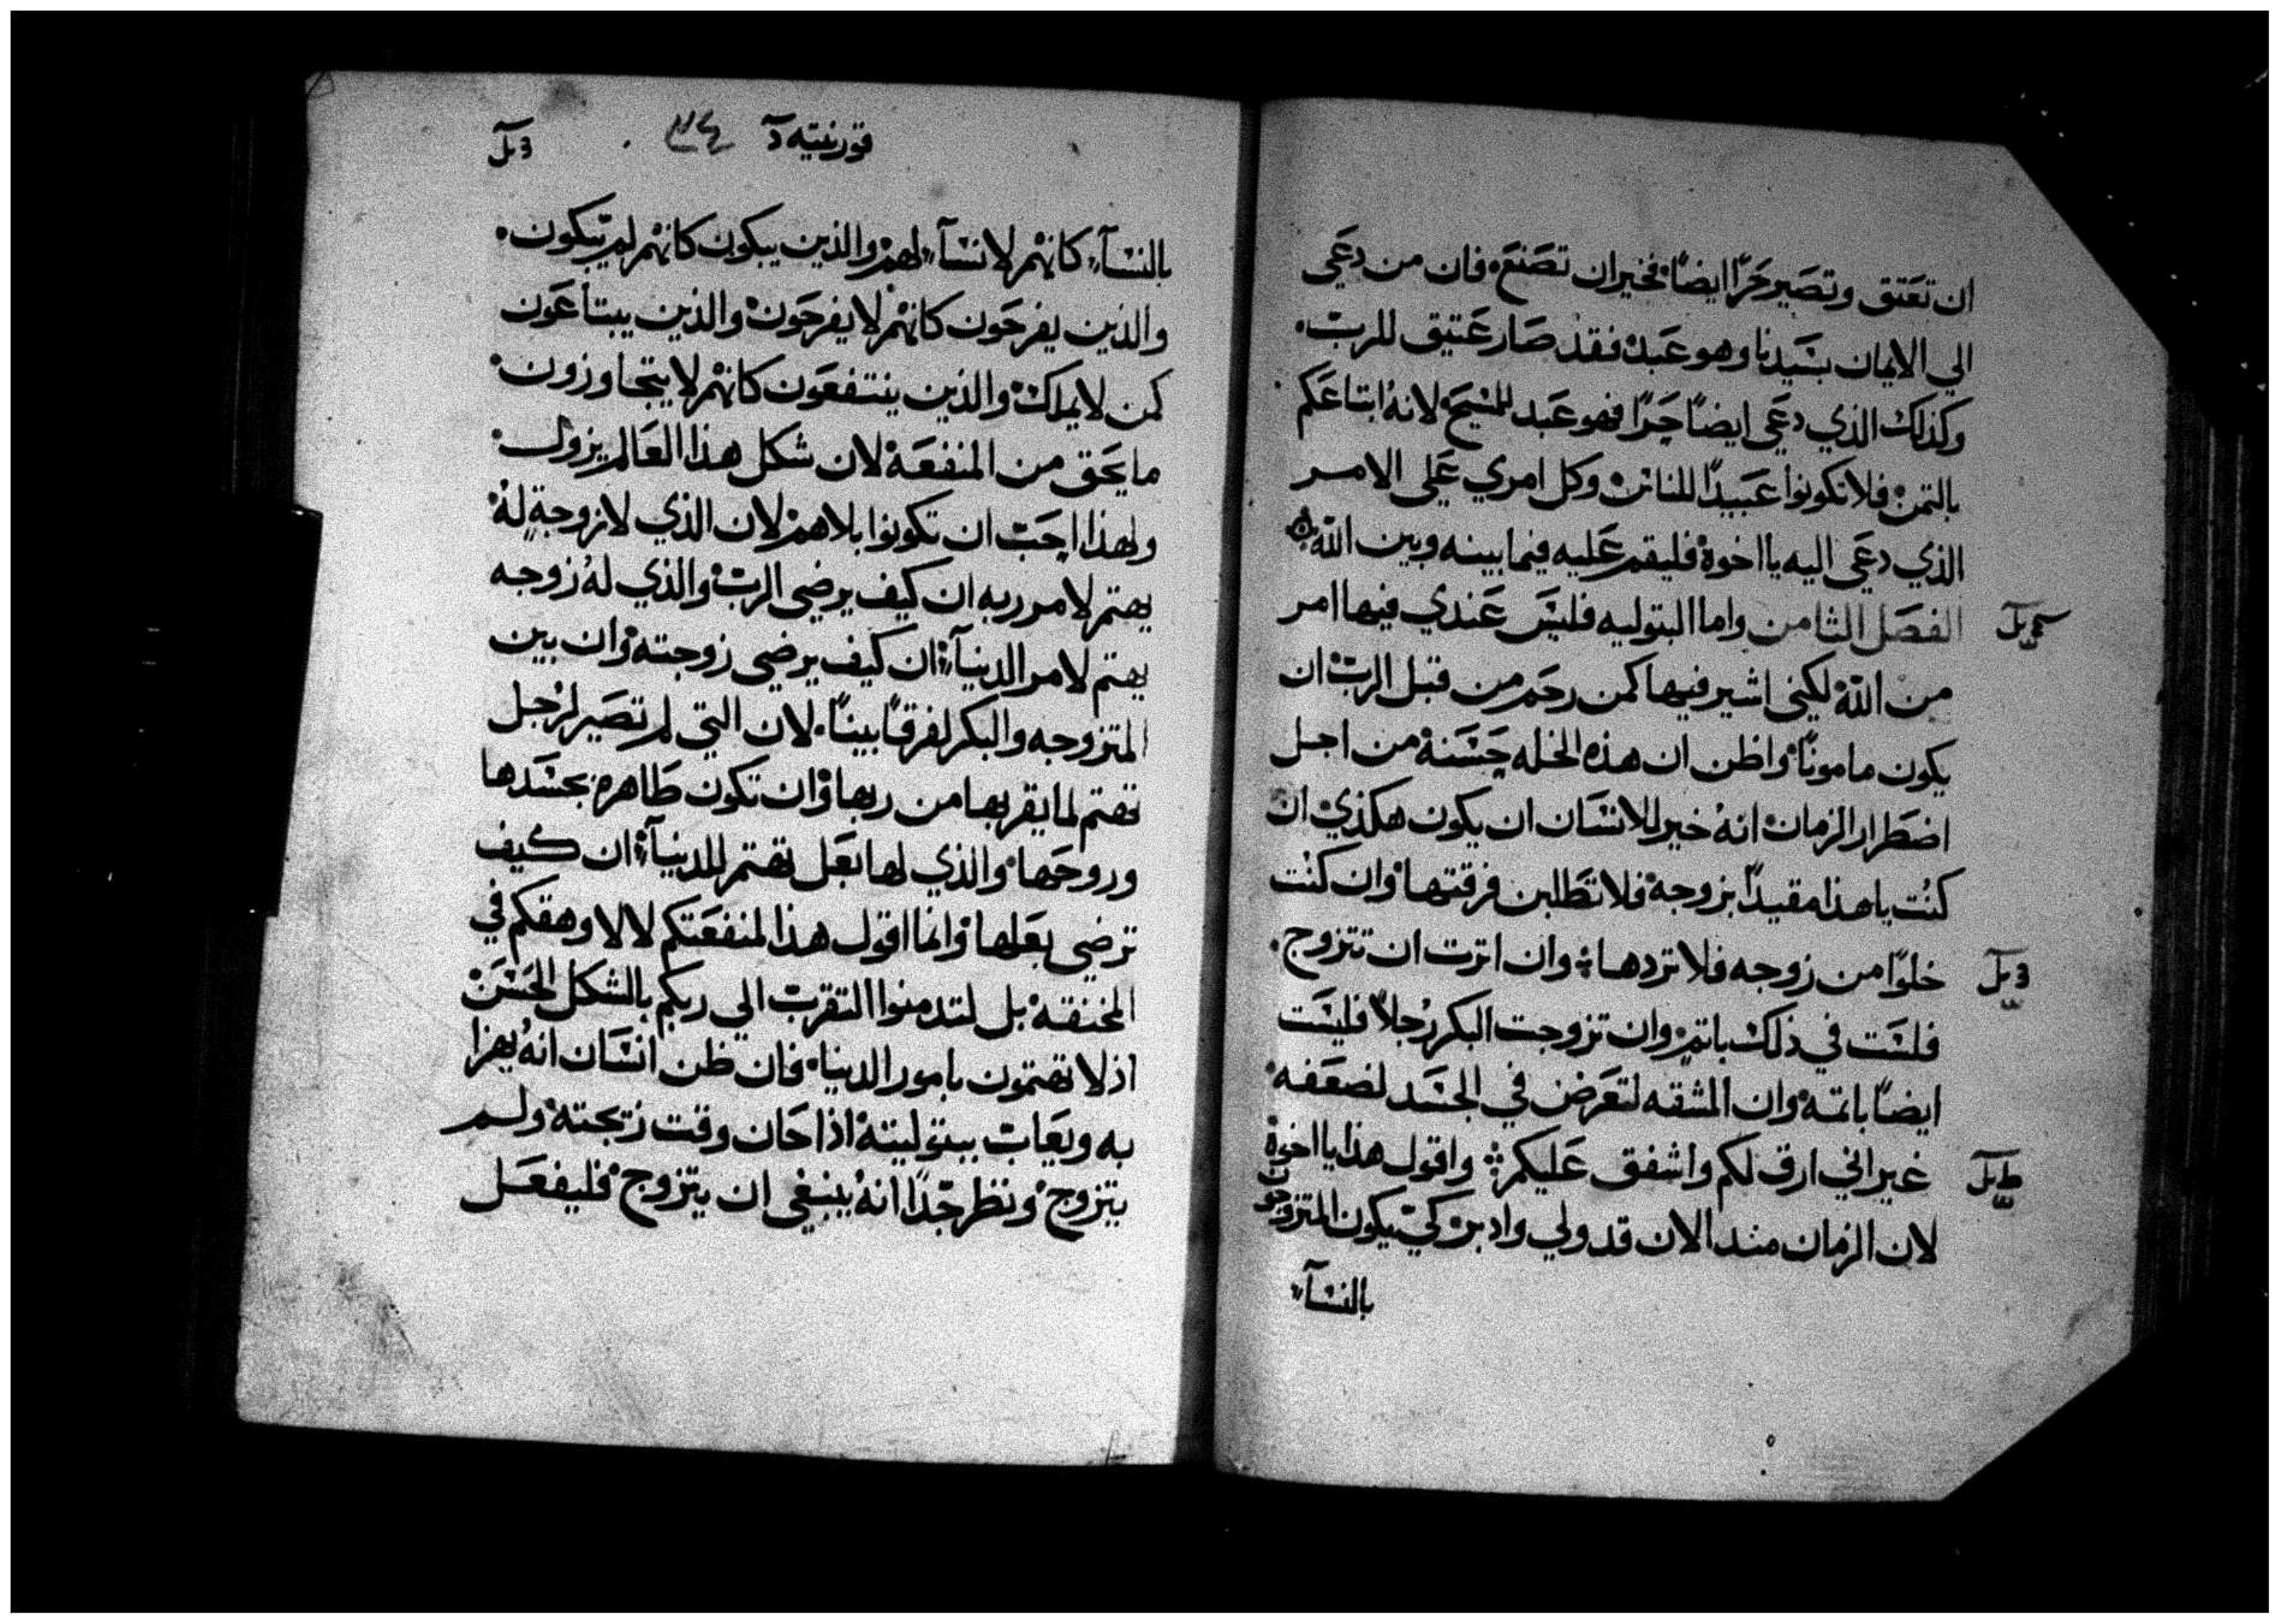 ان تعتق وتصير حرًا ايضًا فخير ان تصنع فان من دعي
الي الايمان بسيدنا وهو عبد فقد صار عتيق للرب
وكذلك الذي دعي ايضًا حرًا فهو عبد للمسيح لانه ابتاعكم
بالتمن فلا تكونوا عبيدًا للناس وكل امري علي الامر
الذي دعي اليه يا اخوة فليقم عليه فيما بينه وبين الله
الفصل الثامن واما البتوليه فليس عندي فيها امر
من الله لكني اشير فيها كمن رحم من قبل الرب ان
يكون مامونًا واظن ان هذه الخله حسنة من اجل
اضطرار الزمان انه خير للانسان ان يكون هكذي ان
كنت يا هذا مقيدًا بزوجة فلا تطلبن فرقتها وان كنت
خلوًا من زوجه فلا تردها وان اترت ان تتزوج
فلست في ذلك باتم وان تزوجت البكر رجلاً فليست
ايضًا باتمة وان المشقه لتعرض في الجسد لضعفه
غير اني ارق لكم واشفق عليكم واقول هذا يا اخوة
لان الزمان مند الان قد ولي وادبر كي يكون المتزوجون
بالنسآء
قورنتيه دآ ٣٤
بالنسآء كانهم لا نسآء لهم والذين يبكون كانهم لم يبكون
والذين يفرحون كانهم لا يفرحون والذين يبتاعون
كمن لا يملك والذين ينتفعون كانهم لا يتجاوزون
ما يحق من المنفعة لان شكل هذا العالم يزول
ولهذا احب ان تكونوا بلا هم لان الذي لا زوجة له
يهتم لامر ربه ان كيف يرضي الرب والذي له زوجه
يهتم لامر الدنيآء ان كيف يرضي زوجته وان بين
المتزوجه والبكر لفرقًا بينًا لان التي لم تصير لرجل
تهتم لما يقربها من ربها وان تكون طاهرة بجسدها
وروحها والذي لها بعل تهتم للدنيآء ان كيف
ترضي بعلها وانما اقول هذا لمنفعتكم لا لاوهقكم في
المخنقة بل لتدمنوا التقرب الي ربكم بالشكل الحسن
اذ لا تهتمون بامور الدنيا فان ظن انسان انه يهزا
به ويعاب ببتوليته اذا حان وقت زيجته ولم
يتزوج ونظر جدًا انه ينبغي ان يتزوج فليفعل